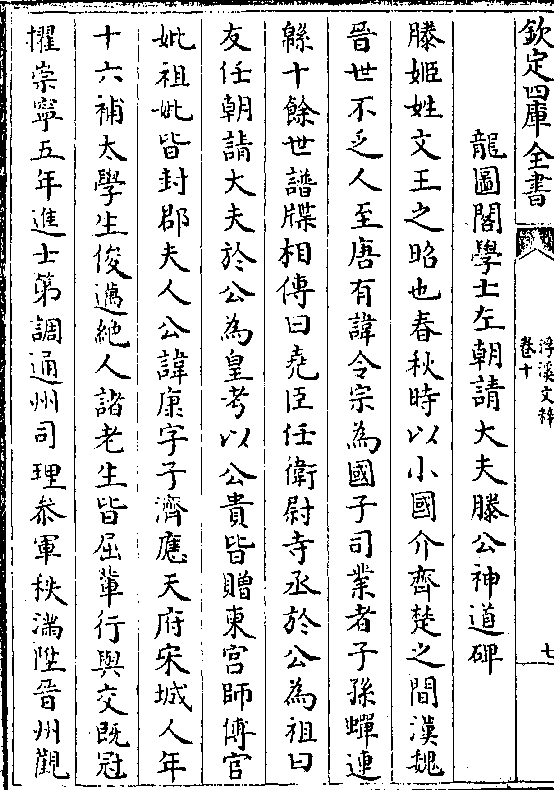 欽定四庫全書
浮溪文粹
卷十
七
龍圖閣學士左朝請大夫滕公神道碑
滕姬姓文王之昭也春秋時以小國介齊楚之間漢魏
晉世不乏人至唐有諱令宗為國子司業者子孫蟬連
緜十餘世譜牒相傳曰堯臣任衛尉寺丞於公為祖曰
友任朝請大夫於公為皇考以公貴皆贈東宮師傅官
妣祖妣皆封郡夫人公諱康字子濟應天府宋城人年
十六補太學生俊邁絶人諸老生皆屈輩行與交既冠
擢崇寧五年進士第調通州司理叅軍秩滿陞晉州觀